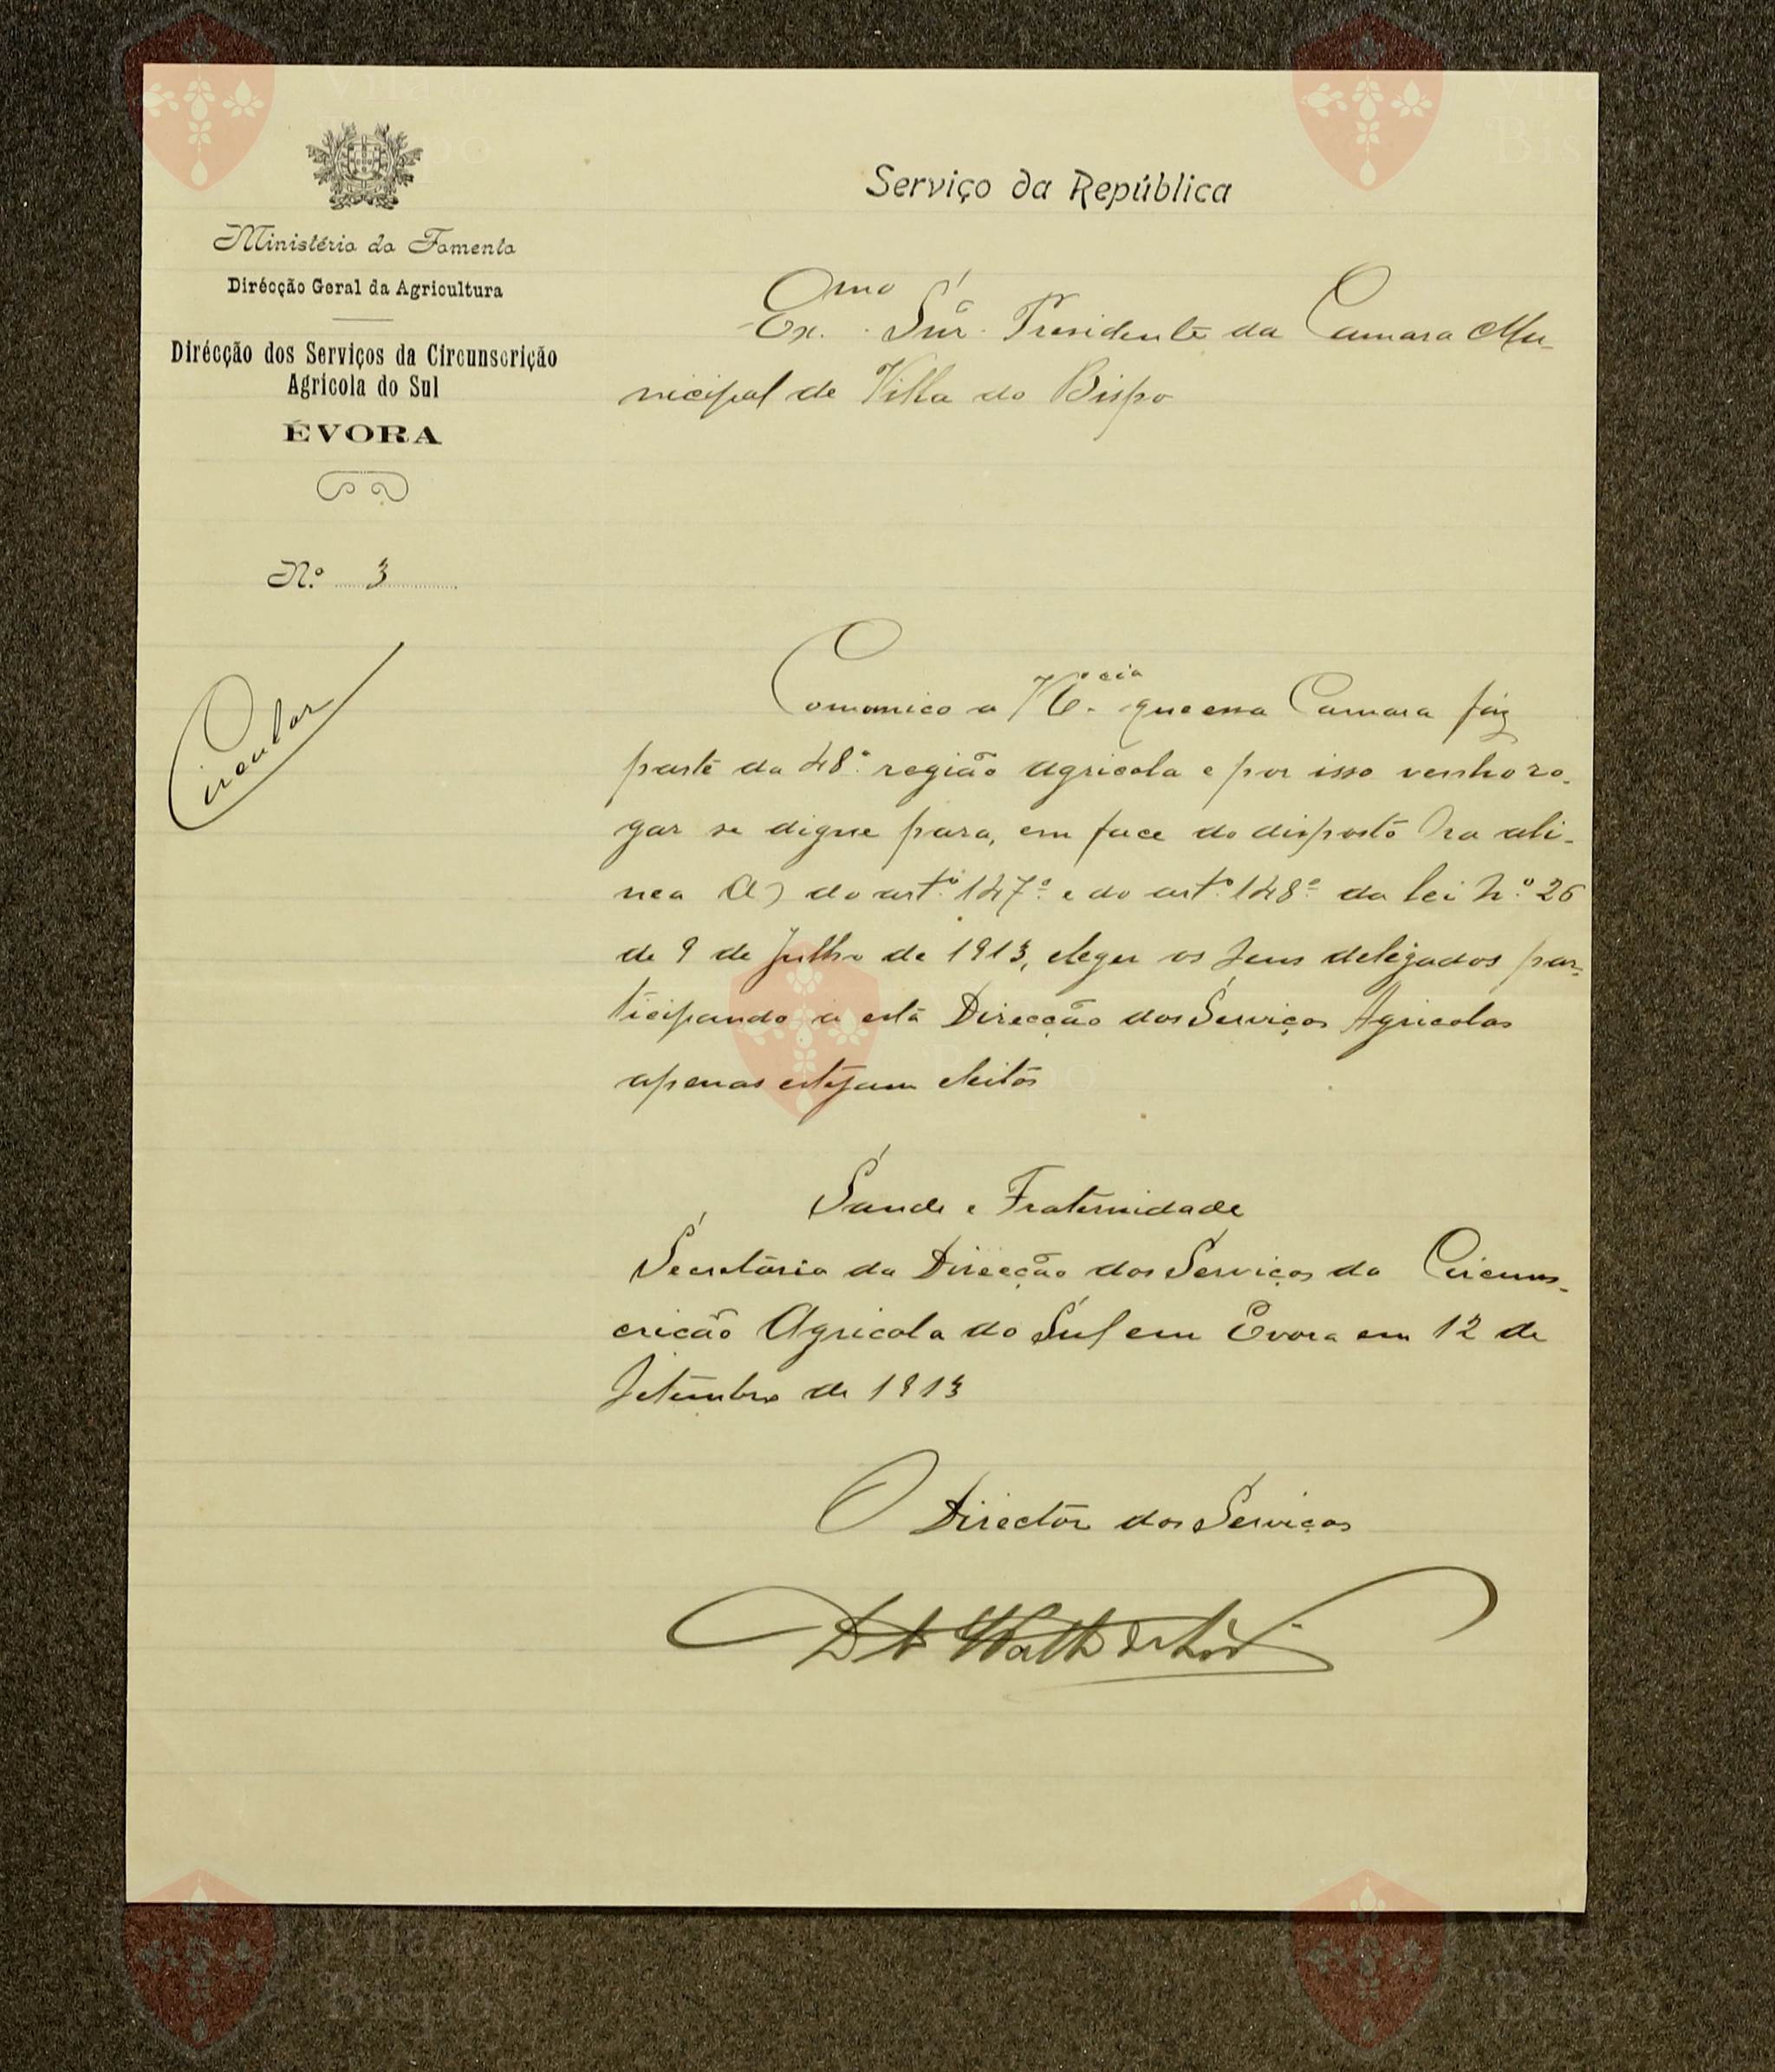 Serviço da República
Ministério do Fomento
Dirécção Geral da Agricultura
Dirécção dos Serviços da Circunscrição
Agricola do Sul
ÉVORA
N.º 3
Circular
Ex.mo Snr. Presidente da Camara Mu-
nicipal de Villa do Bispo
Comonico a V. Ex.cia que essa Camara faz
parte da 48.ª região agricola e por isso venho ro-
gar se digne para, em face do disposto na ali-
nea a) do art.º 147.º e do art.º 148.º da lei n.º 26
de 9 de Julho de 1913, eleger os seus delegados par-
ticipando a esta Direcção dos Serviços Agricolas
apenas estejam eleitos
Saude e Fraternidade
Secretária da Direcção dos Serviços da Circuns-
crição Agricola do Sul em Evora em 12 de
Setembro de 1913
O Director dos Serviços
Vila do
Bispo